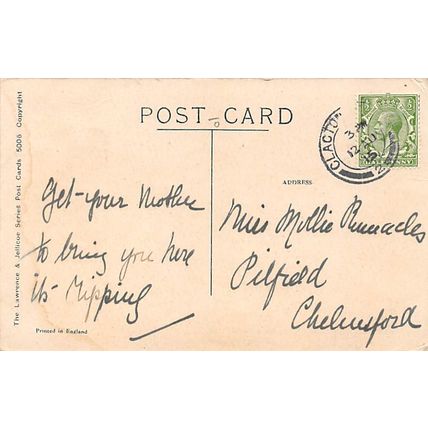 POST CARD
CLACTON
3
12
ADDRESS
Get your Mother
to bring you here
its ripping
Miss Mollie Pinnacles
Pilfield
Chelmsford
The Lawrence & Jellicoe Series Post Cards 5005 Copyright
Printed in England